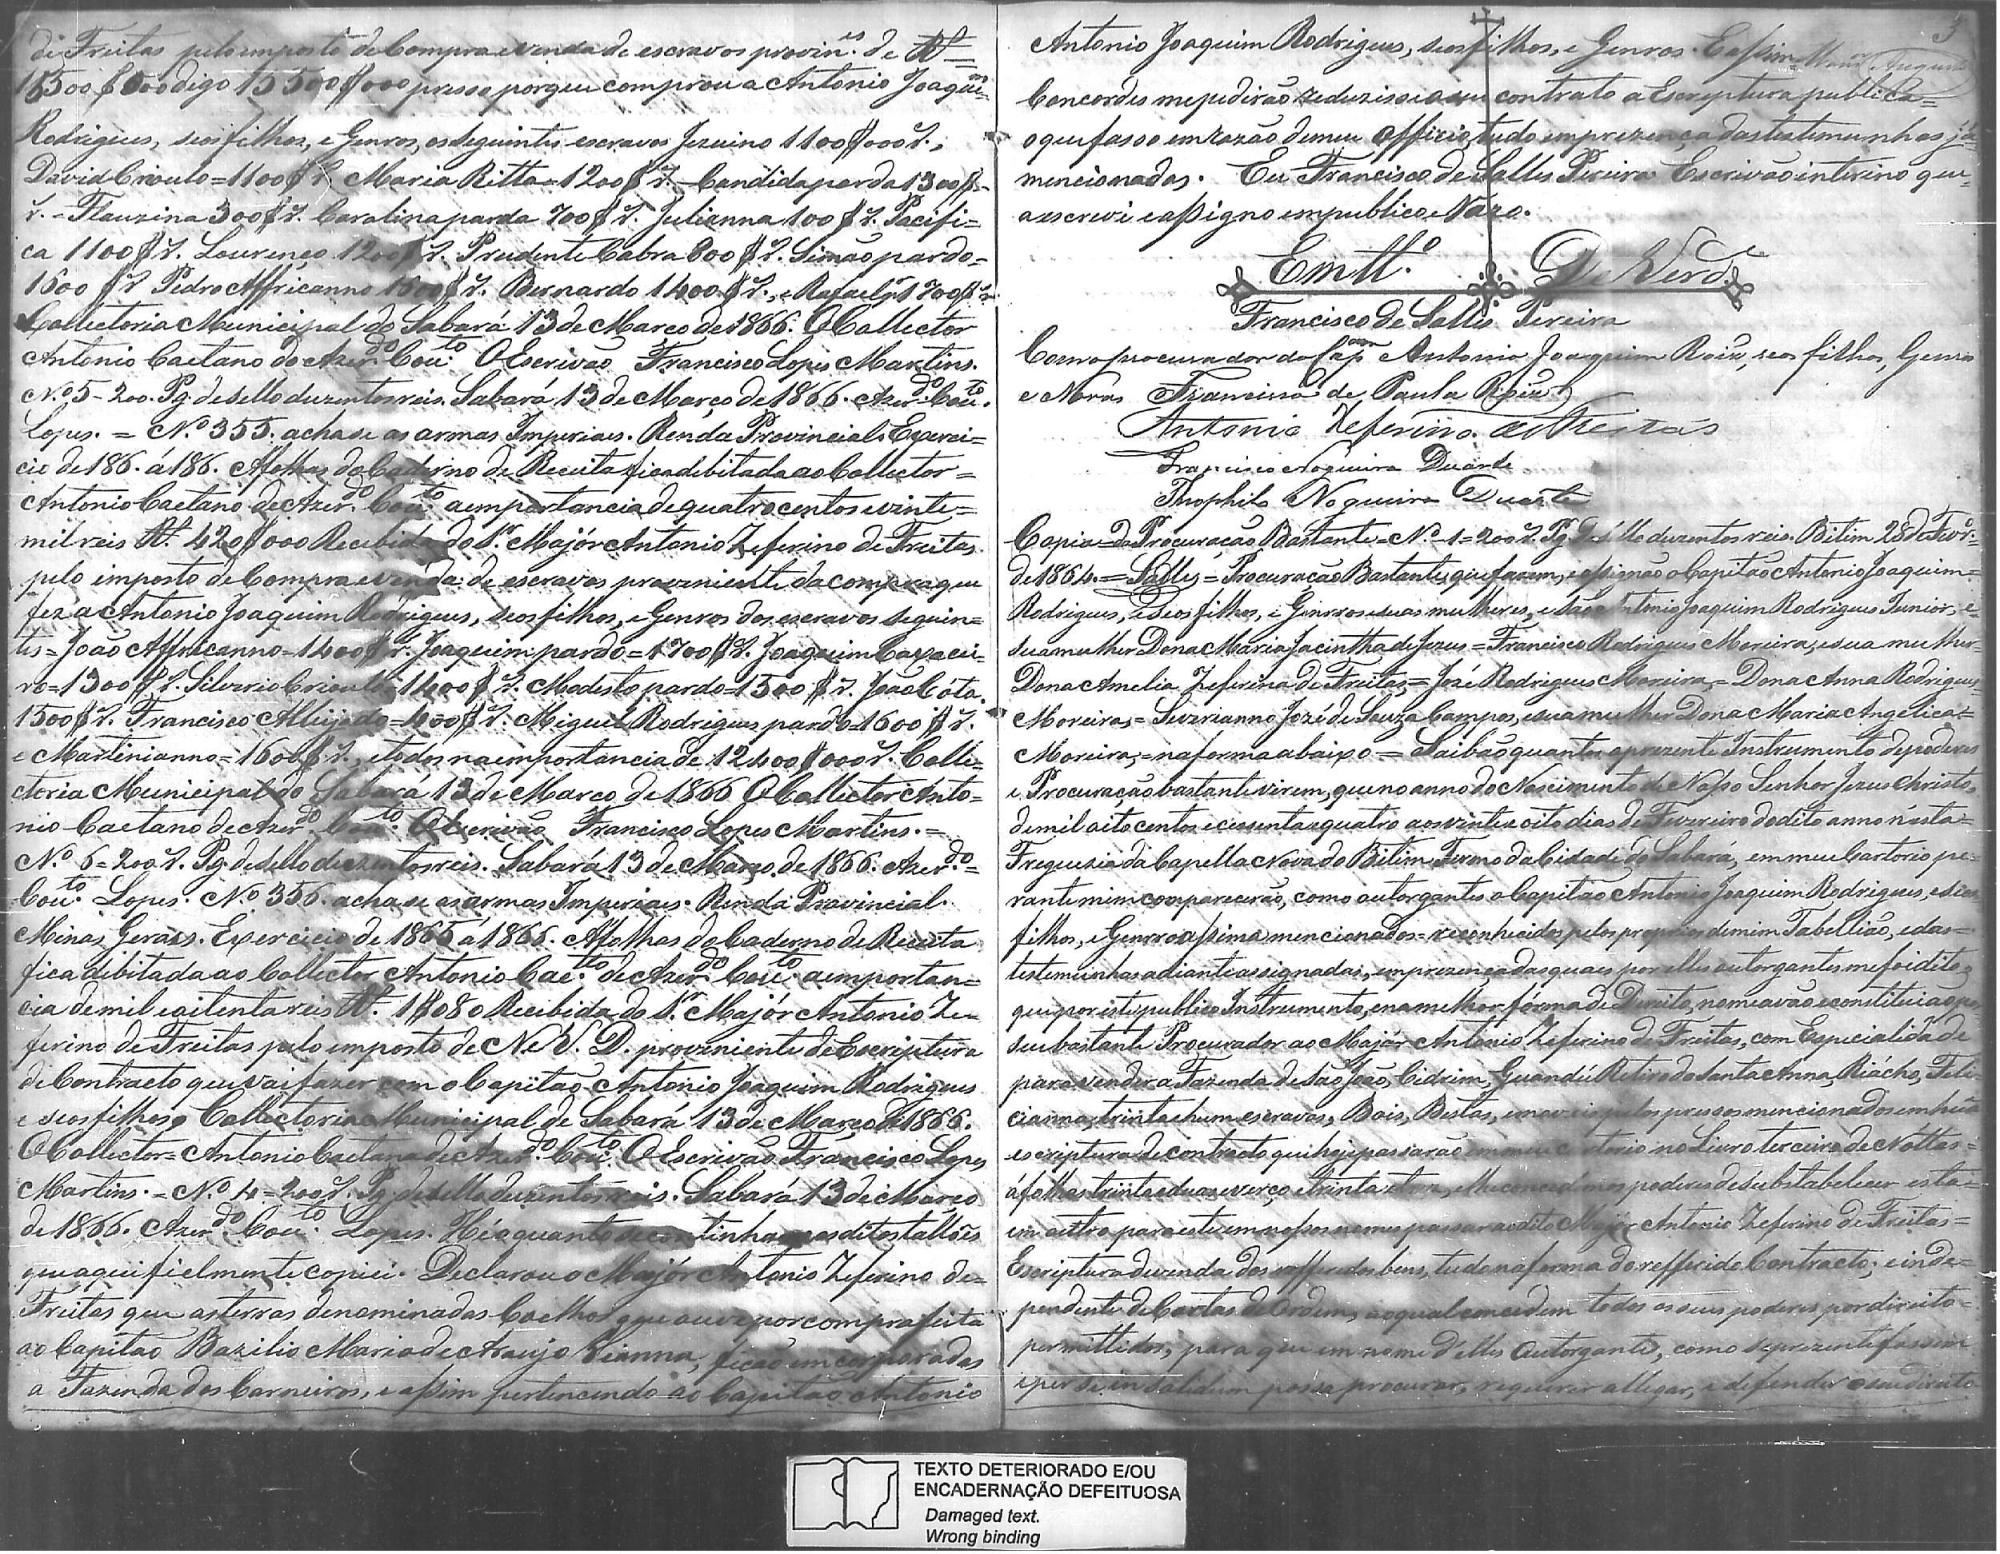 de Freitas pelo imposto de Compra e venda de escravos provin.es de R.s =
15500$000 digo 15500$000 presso porque comprou a Antonio Joaquim
Rodrigues, seos filhos, e Genros, os seguintes escravos Jezuino 1100$000 r.,
David Crioulo = 1100$ r. Maria Ritta = 1200$ r. Candida parda 1300$
r. = Flauzina 300$ r. Carolina parda 700$ r. Julianna 100$ r. Pacifi=
ca 1100$ r. Lourenço 1200$ r. Prudente Cabra 800$ r. Simão pardo =
1600$ r. Pedro Affricanno 1600$ r. Bernardo 1400$ r., e Rafael 1700$ r.
Collectoria Municipal do Sabará 13 de Março de 1866. O Collector
Antonio Caetano de Azer.do Cou.to O Escrivão Francisco Lopes Martins.
N.o 5 - 200. Pg. de sello duzentos reis. Sabará 13 de Março de 1866. Azer.do Cou.to
Lopes. = N.o 355. acha se as armas Imperiais. Renda Provincial. Exerci=
cio de 186. á 186. Afolhas do Caderno de Receita fica debitada ao Collector =
Antonio Caetano de Azer.do Cou.to a emportancia de quatro centos e vinte =
mil reis R.s 420$000 Recebida do S.r Majór Antonio Zeferino de Freitas
pelo imposto de Compra e venda de escravos proveniente da compra que
fez a Antonio Joaquim Rodrigues, seos filhos, e Genros dos escravos seguin=
tes = João Affricanno = 1400$ r. Joaquim pardo = 1700$ r. Joaquim
= 1300$ r. Silverio Crioulo = 1400$ r. Modesto pardo = 1500$ r. João Cóta
1500$ r. Francisco Alleijado = 400$ r. Miguel Rodrigues pardo = 1600$ r.
e Martinianno = 1600$ r., e todos na emportancia de 12400$000 r. Colle=
ctoria Municipal do Sabará 13 de Março de 1866 O Collector Anto=
nio Caetano de Azer.do Cou.to O Escrivão Francisco Lopes Martins. =
N.o 6 = 200 r. Pg. de sello duzentos reis. Sabará 13 de Março de 1866. Azer.do =
Cou.to Lopes. N.o 356. acha se as armas Imperiais. Renda Provincial.
Minas Gerais. Exercicio de 1865 á 1866. Afolhas do Caderno de Receita
fica debitada ao Collector Antonio Cae.tto de Azer.do Cou.to a emportan=
cia de mil e oitenta reis R.s 1$080 Recebida do S.r Majór Antonio Ze=
ferino de Freitas pelo imposto de N. e V. D. proveniente de Escriptura
de Contracto que vai fazer com o Capitão Antonio Joaquim Rodrigues
e seos filhos Collectoria Municipal de Sabará 13 de Março de 1866.
O Collector = Antonio Caetano de Azer.do Cou.to O Escrivão Francisco Lopes
Martins. = N.o 4 = 200 r. Pg. de sello duzentos reis. Sabará 13 de Março
de 1866. Azer.do Cou.to Lopes. Hé o quanto se continha nos ditos tallões
que aqui fielmente copiei. Declarou o Majór Antonio Zeferino de =
Freitas que as terras denominadas Coelho que ouve por compra feita
ao Capitão Bazilio Maria de Araujo Vianna, ficão emcorporadas
a Fazenda dos Carneiros, e assim pertencendo ao Capitão Antonio
Antonio Joaquim Rodrigues, seos filhos, e Genros. E assim
Concordes me pedirão reduzisse a seu contrato a Escriptura publica =
o que fasso em razão de meu Officio, tudo em prezença das testemunhas já
mencionadas. Eu Francisco de Salles Pereira Escrivão interino que
a escrevi e assigno em publico e Razo.
Em tt.o De Verd.e
Francisco de Salles Pereira
Como procurador do Cap.am Antonio Joaquim Roiz, seos filhos, Genros
e Noras Francisco de Paula
Antonio Zeferino de Freitas
Francisco Nogueira Duarte
Theophilo Nogueira Duarte
Copia da Procuração Bastante = N.o 1 = 200 r. Pg. de sello duzentos reis. Bitim 28 de Fevr.o =
de 1864. = Salles = Procuração Bastante que fazem, e assignão o Capitão Antonio Joaquim =
Rodrigues, e seos filhos, e Genrros e suas mulheres, e são Antonio Joaquim Rodrigues Junior, e
sua mulher Dona Maria Jacintha de Jezus = Francisco Rodrigues Moreira, e sua mulher
Dona Amelia Zeferina de Freitas = José Rodrigues Moreira, = Dona Anna Rodrigues
Moreira, = Severianno Jozé de Souza Campos, e sua mulher Dona Maria Angelica =
Moreira, = na forma abaixo = Saibão quantos o prezente Instrumento de poderes
e Procuração bastante virem, que no anno do Nascimento de Nosso Senhor Jezus Christo,
de mil oito centos e cessenta e quatro aos vinte e oito dias de Fevereiro do dito anno n'esta =
Freguezia da Capella Nova do Bitim Termo da Cidade do Sabará, em meu Cartorio pe=
rante mim comparecerão, como outorgantes o Capitão Antonio Joaquim Rodrigues, e seos
filhos, e Genrros assima mencionados = reconhecidos pelos proprios de mim Tabellião, e das =
testemunhas adiante assignadas, em prezença das quais por elles outorgantes me foi dito =
que por este publico Instrumento, e na melhor fórma de Direito, nomeavão e constituião por
seu bastante Procurador ao Majór Antonio Zeferino de Freitas, com Especialidade
para vender a Fazenda de São João, Cidrim, Guandú Retiro de Santa Anna, Riácho, Feli=
cianna, trinta e hum escravos, Bois, Bestas, e moveis pelos pressos mencionados em húa
escriptura de contracto que hoje passarão em meu cartorio no Livro terceiro de Nottas =
á folhas trinta e duas verço e trinta e tres, e lhe concedemos poderes de substabelecer esta =
em outro para este em nossos nomes passar ao dito Majór Antonio Zeferino de Freitas =
Escriptura de venda dos refferidos bens, tudo na forma do refferido Contracto; e inde=
pendente de Cartas de Ordens, ao qual concedem todos os seus poderes por direito =
permittidos, para que em nome d'elles Outorgante, como se prezente fossem
e per si e in solidum possa procurar, requerer allegar, e defender o seu direito
TEXTO DETERIORADO E/OU
ENCADERNAÇÃO DEFEITUOSA
Damaged text.
Wrong binding